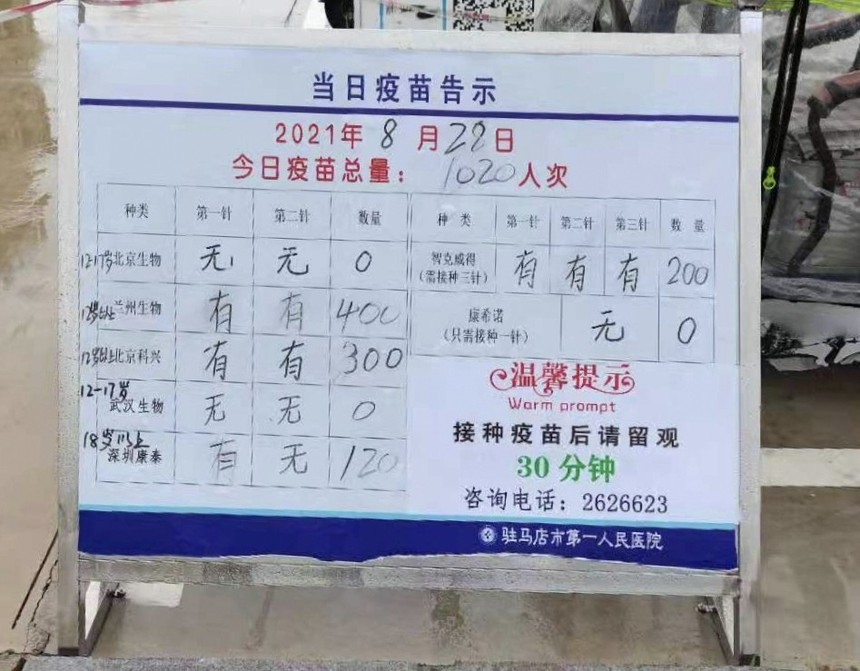 当日疫苗告示
2021年8月28日
今日疫苗总量：1020人次
种类 第一针 第二针 数量
12-17岁北京生物 无 无 0
12岁以上兰州生物 有 有 400
12岁以上北京科兴 有 有 300
12-17岁武汉生物 无 无 0
18岁以上深圳康泰 有 无 120
种类 第一针 第二针 第三针 数量
智克威得 有 有 有 200
（需接种三针）
康希诺 无 0
（只需接种一针）
温馨提示
Warm prompt
接种疫苗后请留观
30分钟
咨询电话：2626623
驻马店市第一人民医院